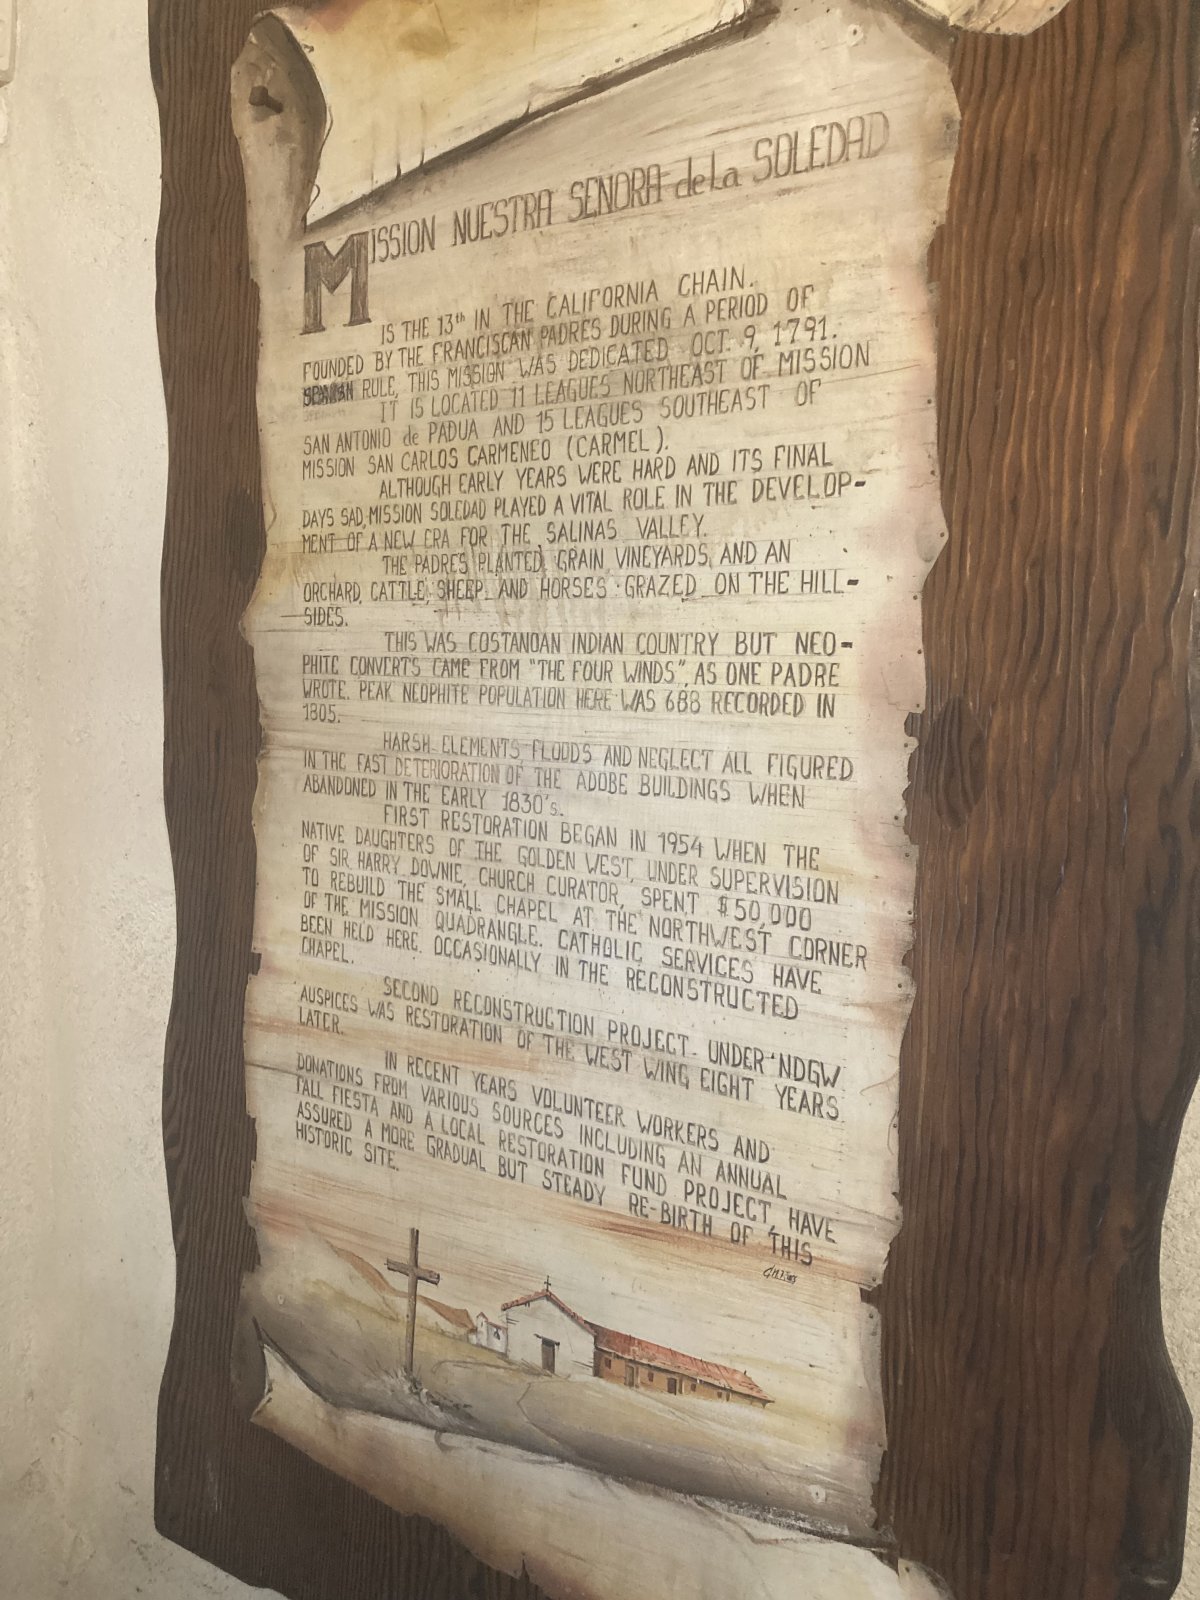 MISSION NUESTRA SENORA de la SOLEDAD
IS THE 13th IN THE CALIFORNIA CHAIN.
FOUNDED BY THE FRANCISCAN PADRES DURING A PERIOD OF
SPANISH RULE, THIS MISSION WAS DEDICATED OCT. 9, 1791.
IT IS LOCATED 11 LEAGUES NORTHEAST OF MISSION
SAN ANTONIO de PADUA AND 15 LEAGUES SOUTHEAST OF
MISSION SAN CARLOS CARMENEO (CARMEL).
ALTHOUGH EARLY YEARS WERE HARD AND ITS FINAL
DAYS SAD, MISSION SOLEDAD PLAYED A VITAL ROLE IN THE DEVELOP-
MENT OF A NEW ERA FOR THE SALINAS VALLEY.
THE PADRES PLANTED GRAIN, VINEYARDS, AND AN
ORCHARD, CATTLE, SHEEP AND HORSES GRAZED ON THE HILL-
SIDES.
THIS WAS COSTANOAN INDIAN COUNTRY BUT NEO-
PHITE CONVERTS CAME FROM "THE FOUR WINDS", AS ONE PADRE
WROTE. PEAK NEOPHITE POPULATION HERE WAS 688 RECORDED IN
1805.
HARSH ELEMENTS FLOODS AND NEGLECT ALL FIGURED
IN THE FAST DETERIORATION OF THE ADOBE BUILDINGS WHEN
ABANDONED IN THE EARLY 1830's.
FIRST RESTORATION BEGAN IN 1954 WHEN THE
NATIVE DAUGHTERS OF THE GOLDEN WEST, UNDER SUPERVISION
OF SIR HARRY DOWNIE, CHURCH CURATOR, SPENT $50,000
TO REBUILD THE SMALL CHAPEL AT THE NORTHWEST CORNER
OF THE MISSION QUADRANGLE. CATHOLIC SERVICES HAVE
BEEN HELD HERE. OCCASIONALLY IN THE RECONSTRUCTED
CHAPEL.
SECOND RECONSTRUCTION PROJECT UNDER NDGW
AUSPICES WAS RESTORATION OF THE WEST WING EIGHT YEARS
LATER.
IN RECENT YEARS VOLUNTEER WORKERS AND
DONATIONS FROM VARIOUS SOURCES INCLUDING AN ANNUAL
FALL FIESTA AND A LOCAL RESTORATION FUND PROJECT, HAVE
ASSURED A MORE GRADUAL BUT STEADY RE-BIRTH OF THIS
HISTORIC SITE.